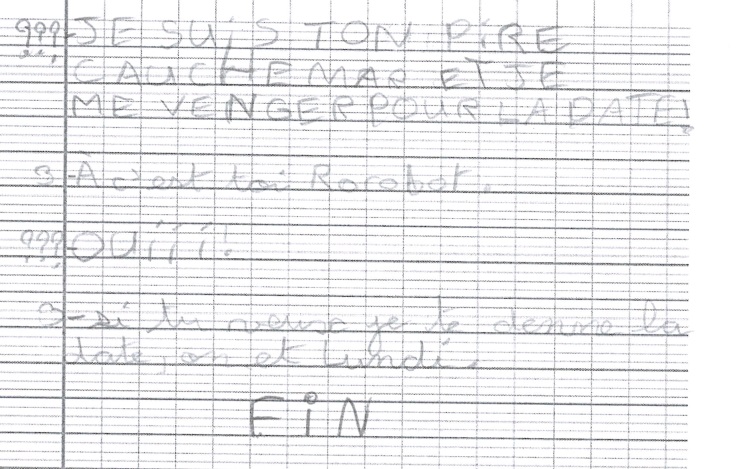 ???-JE SUiS TON PiRE
CAUCHEMAR ET JE
ME VENGER POUR LA DATE!
3-À c'est toi Rorobot.
???-OUííí!
3-si tu veux je te donne la
date, on et Lundi.
FiN